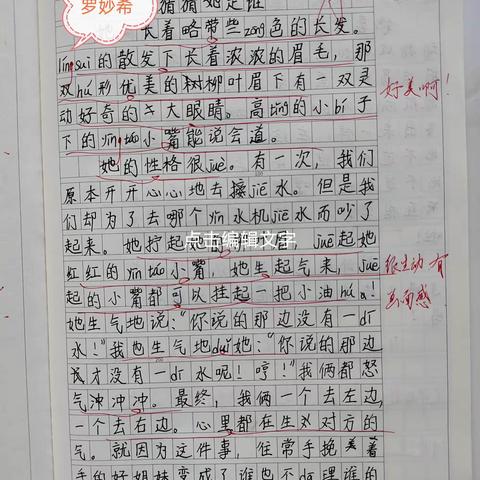 罗妙希
猜猜她是谁
长着略带些zong色的长发。
líng suì的散发下长着浓浓的眉毛，那
双hú形优美的树柳叶眉下有一双灵
动好奇的大眼睛。高tǐng的小bí子
好美啊！
下的yīn táo小嘴能说会道。
她的性格很juè。有一次，我们
原本开开心心地去接jiē水。但是我
们却为了去哪个yǐn水机jiē水而吵了
起来。她拧起她的
点击编辑文字
，juē起她
红红的yīn táo小嘴，她生起气来，juē
很生动 有
起的小嘴都可以挂起一把小油hú！
画面感
她生气地说：“你说的那边没有一dī
水！”我也生气地duì她：“你说的那边
才没有一dī水呢！哼！”我俩都怒
气冲冲。最终，我俩一个去左边，
一个去右边。心里都在生对方的
气。就因为这件事，往常手挽着
手的好姐妹变成了谁也不dā理谁的